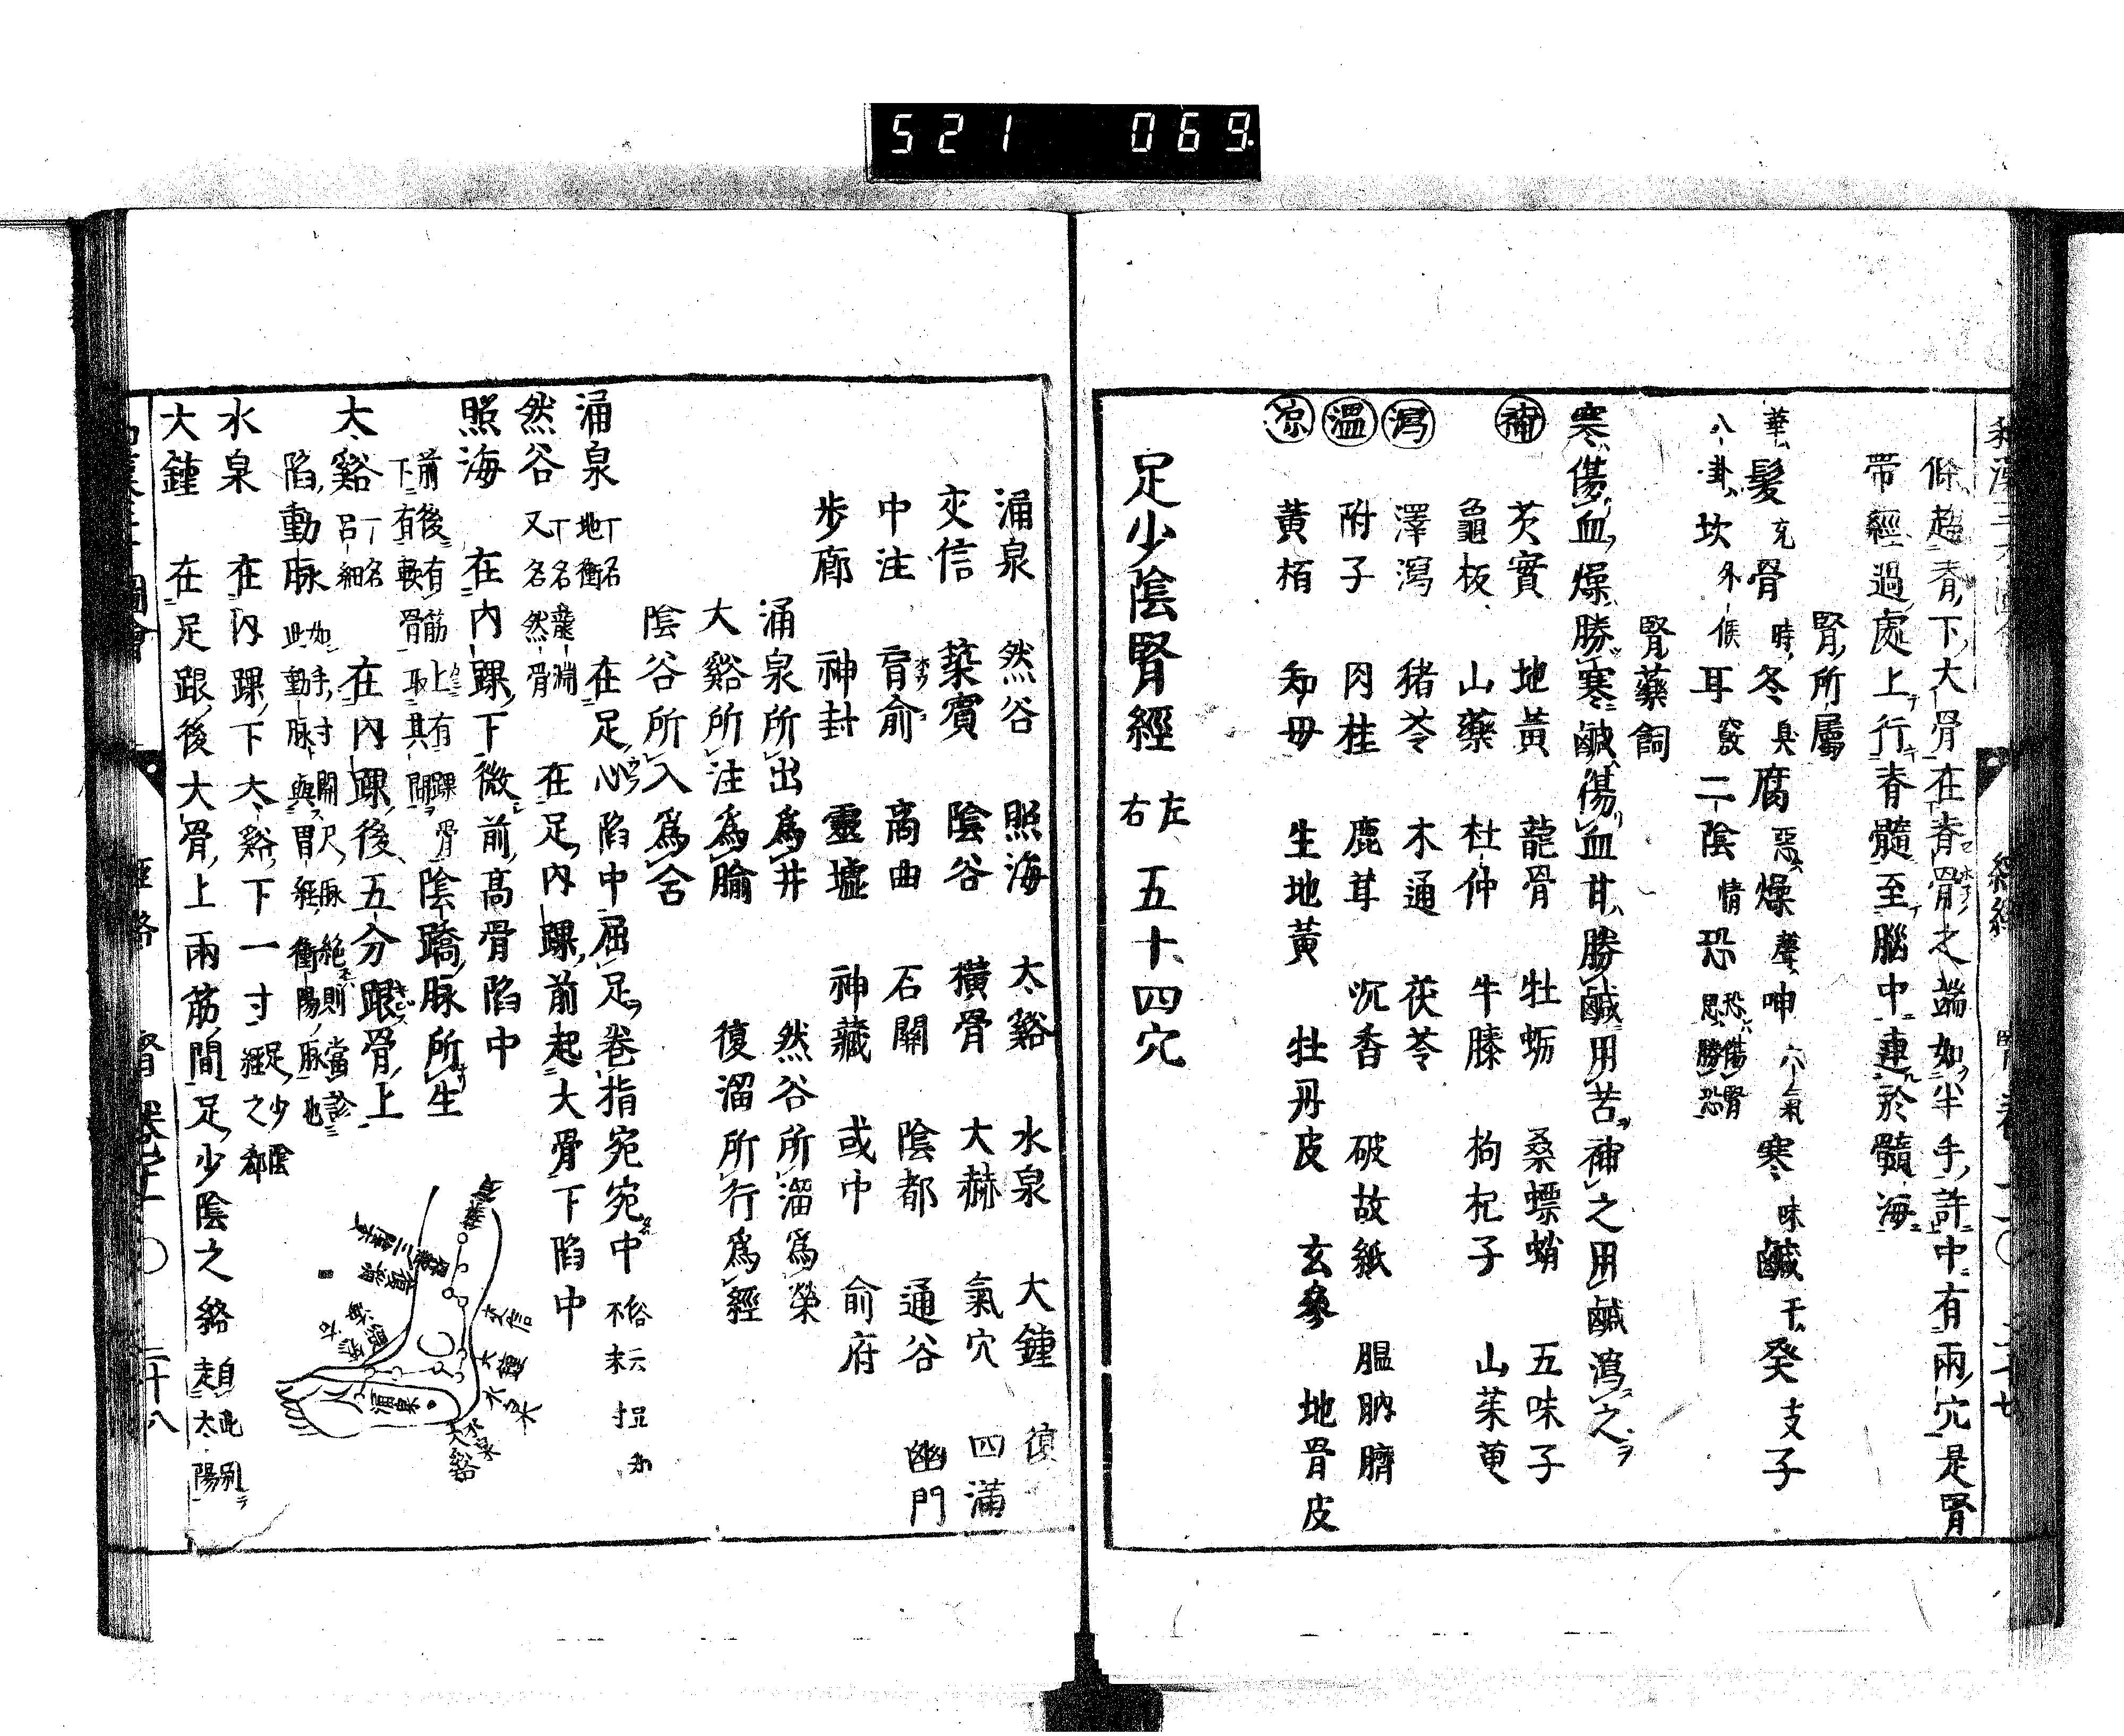 521 069
條趨脊下大骨在脊骨之端如半手許中有兩穴是腎
帶經過處上行脊髓至腦中連於髓海
腎所屬
華髮 充骨 時冬 臭腐 惡燥 聲呻 六氣寒 味鹹 干癸 支子
八卦坎 外候耳 竅二陰 情恐 恐傷腎 思勝恐
腎藥餌
寒傷血燥勝寒鹹傷血甘勝鹹用苦補之用鹹瀉之
補 芡實 地黃 龍骨 牡蛎 桑螵蛸 五味子
龜板 山藥 杜仲 牛膝 枸杞子 山茱萸
瀉 澤瀉 猪苓 木通 茯苓
溫 附子 肉桂 鹿茸 沉香 破故紙 膃肭臍
涼 黃栢 知母 生地黃 牡丹皮 玄參 地骨皮
足少陰腎經 左右 五十四穴
涌泉 然谷 照海 太谿 水泉 大鍾 復
交信 築賓 陰谷 橫骨 大赫 氣穴 四滿
中注 肓俞 商曲 石關 陰都 通谷 幽門
步廊 神封 靈墟 神藏 或中 俞府
涌泉所出爲井 然谷所溜爲滎
大谿所注爲腧 復溜所行爲經
陰谷所入爲合
涌泉 一名地衝 在足心陷中屈足卷指宛宛中
然谷 一名龍淵又名然骨 在足內踝前起大骨下陷中
照海 在內踝下微前高骨陷中
前後有筋上有踝骨下有軟骨取其間 陰蹻脉所生
太谿 一名呂細 在內踝後五分跟骨上
陷動脉 如手寸關尺脉絕則當診此動脉與胃經衝陽脉也
水泉 在內踝下太谿下一寸 足少陰經之郗
大鍾 在足跟後大骨上兩筋間足少陰之絡 自此別走太陽
築賓
三陰交
復溜
交信
大鍾
水泉
照海
然谷
涌泉
水泉
大谿